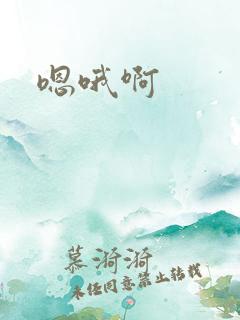 嗯哦啊
慕漪漪
未经同意禁止转载